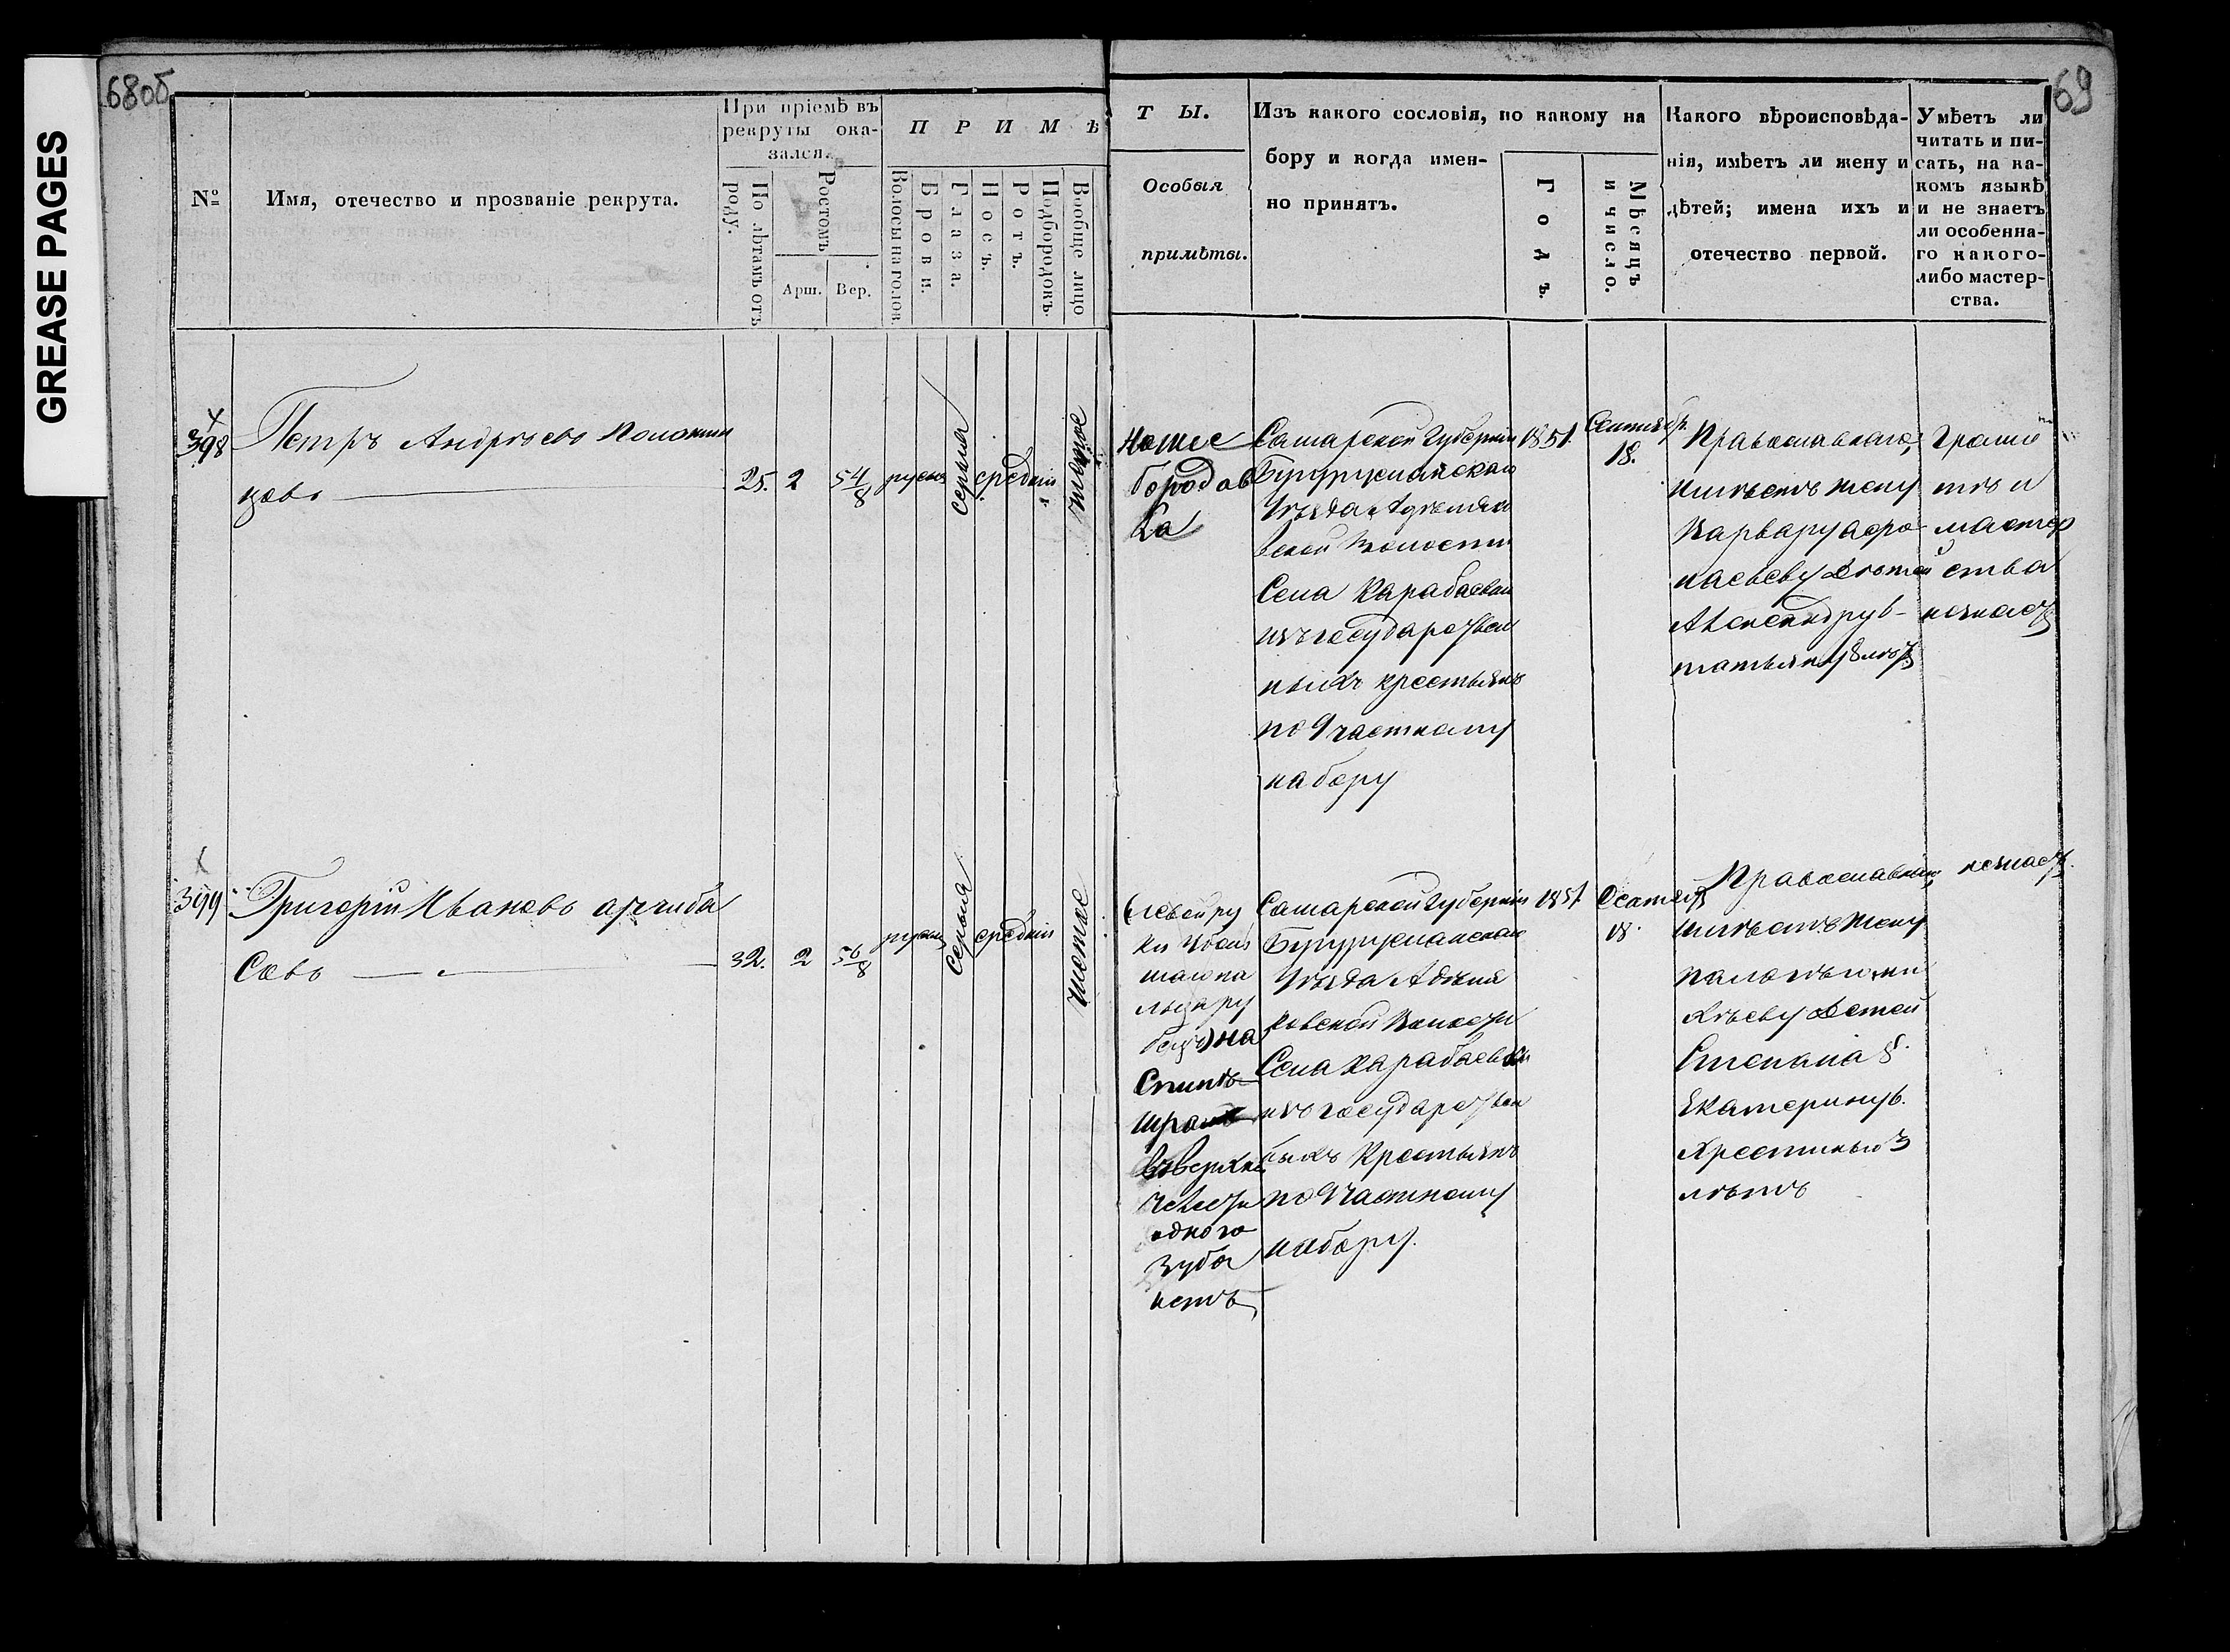 GREASE PAGES
68об
69
№
Имя, отечество и прозваніе рекрута.
При пріемѣ въ
рекруты ока-
зался.
По лѣтамъ отъ
роду.
Ростомъ
Арш. Вер.
П Р И М Ѣ
Волосы на голов.
Брови.
Глаза.
Носъ.
Ротъ.
Подбородокъ.
Вообще лицо
Т Ы.
Особыя
примѣты.
Изъ какого сословія, по какому на
бору и когда имен-
но принятъ.
Годъ.
Мѣсяцъ
и число.
Какого вѣроисповѣда-
нія, имѣетъ ли жену и
дѣтей; имена ихъ и
отечество первой.
Умѣетъ ли
читать и пи-
сать, на ка-
комъ языкѣ
и не знаетъ
ли особенна-
го какого-
либо мастер-
ства.
398
Петръ Андрѣевъ
цовъ
25. 2 5 4/8
русые
серыя
средніи
бородов
ка
Самарской Губерніи
Бугурусланскаго
Уѣзда
вской Волости
Села Карабаевки
изъ государствен
ныхъ крестьянъ
по 9 частному
набору
1851.
Сентябр.
18.
Православнаго,
имѣетъ жену
Варвару афо
насьеву Дѣтей
Александру 6-
татьяну 8 лѣтъ
Грамо
тѣ и
мастер
ства
незнаетъ
399
Григорій Ивановъ арчиба
совъ
32. 2 5 6/8
русыя
серыя
средніи
Левой ру
ки
на
ру
на
Спинѣ
шрам
вверхне
челюсти
одного
зуба
нетъ
Самарской Губерніи
Бугурусланскаго
Уѣзда
ковской Волости
Села Карабаевки
изъ государствен
ныхъ Крестьянъ
по 9 частному
набору.
1851
Сентября
18.
Православнаго,
имѣетъ жену
дѣтей
Степана 8.
Екатерину 6.
Хрестинью 3
лѣтъ
незнаетъ.